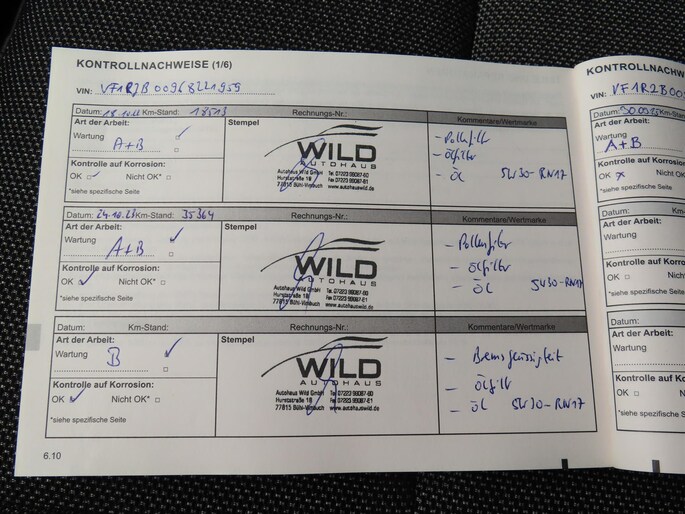 KONTROLLNACHWEISE (1/6)
VIN: VF1RJB00968221959
Datum: Km-Stand: 18513 Rechnungs-Nr.: Kommentare/Wertmarke
Art der Arbeit: Stempel
Wartung
A+B
Kontrolle auf Korrosion:
OK Nicht OK*
*siehe spezifische Seite
WILD
AUTOHAUS
Autohaus Wild GmbH Tel. 07223 99087-60
Hurststraße 18
77815 Bühl-Vimbuch www.autohauswild.de
- Pollenfilter
- Ölfilter
- Öl 5W30-RN17
Datum: 24.10. Km-Stand: 35364 Rechnungs-Nr.: Kommentare/Wertmarke
Art der Arbeit: Stempel
Wartung
A+B
Kontrolle auf Korrosion:
OK Nicht OK*
*siehe spezifische Seite
WILD
AUTOHAUS
Autohaus Wild GmbH Tel. 07223 99087-60
Hurststraße 18 Fax 07223 99087-61
77815 Bühl-Vimbuch www.autohauswild.de
- Pollenfilter
- Ölfilter
- Öl 5W30-RN17
Datum: Km-Stand: Rechnungs-Nr.: Kommentare/Wertmarke
Art der Arbeit: Stempel
Wartung
B
Kontrolle auf Korrosion:
OK Nicht OK*
*siehe spezifische Seite
WILD
AUTOHAUS
Autohaus Wild GmbH Tel. 07223 99087-60
Hurststraße 18 Fax 07223 99087-61
77815 Bühl-Vimbuch www.autohauswild.de
- Bremsflüssigkeit
- Ölfilter
- Öl 5W30-RN17
6.10
KONTROLLNACHW
VIN: VF1RJB00
Datum: Km-Stan
Art der Arbeit:
Wartung
A+B
Kontrolle auf Korrosion:
OK x Nicht OK*
*siehe spezifische Seite
Datum:
Art der Arbeit:
Wartung
Kontrolle auf Korro
OK Nicht O
*siehe spezifische Se
Datum:
Art der Arbeit:
Wartung
Kontrolle auf Ko
OK Nicht
*siehe spezifische